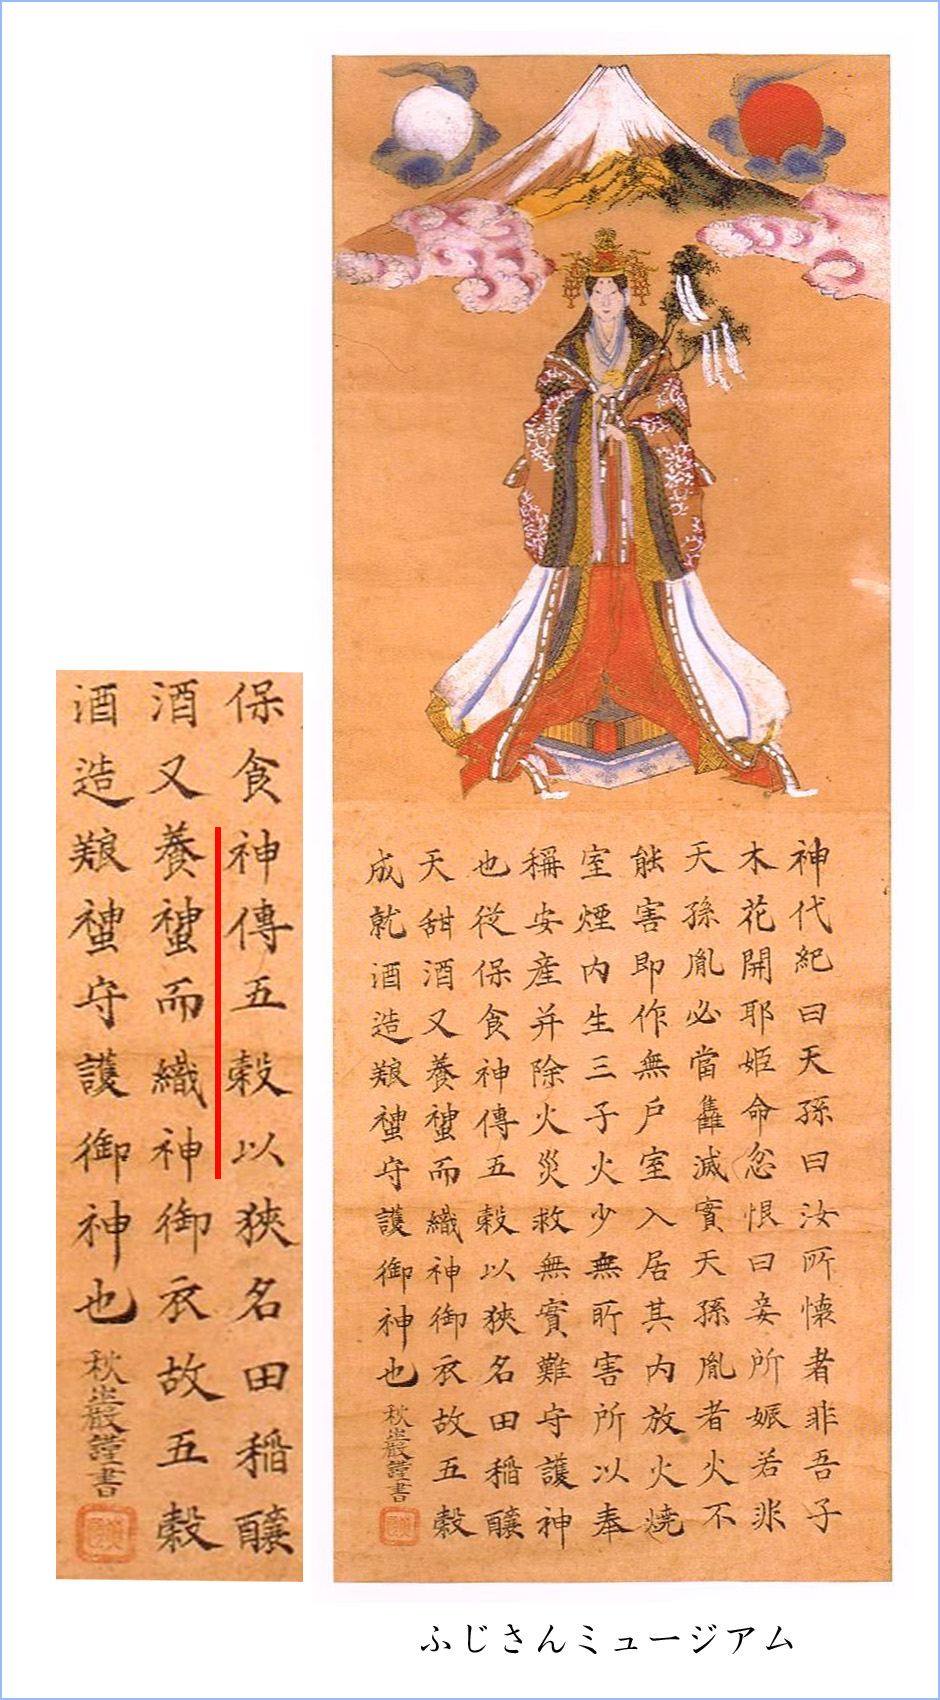 神代紀曰天孫曰汝所懐者非吾子
木花開耶姫命忿恨曰妾所娠若非
天孫胤必當滅實天孫胤者火不
能害即作無戸室入居其内放火焼
室煙内生三子火少無所害所以奉
稱安産并除火災救無實難守護神
也従保食神傳五穀以狭名田稲釀
天甜酒又養而織神御衣故五穀
成就酒造守護御神也
秋巌謹書
保食神傳五穀以狭名田稲釀
酒又養而織神御衣故五穀
酒造守護御神也
秋巌謹書
ふじさんミュージアム